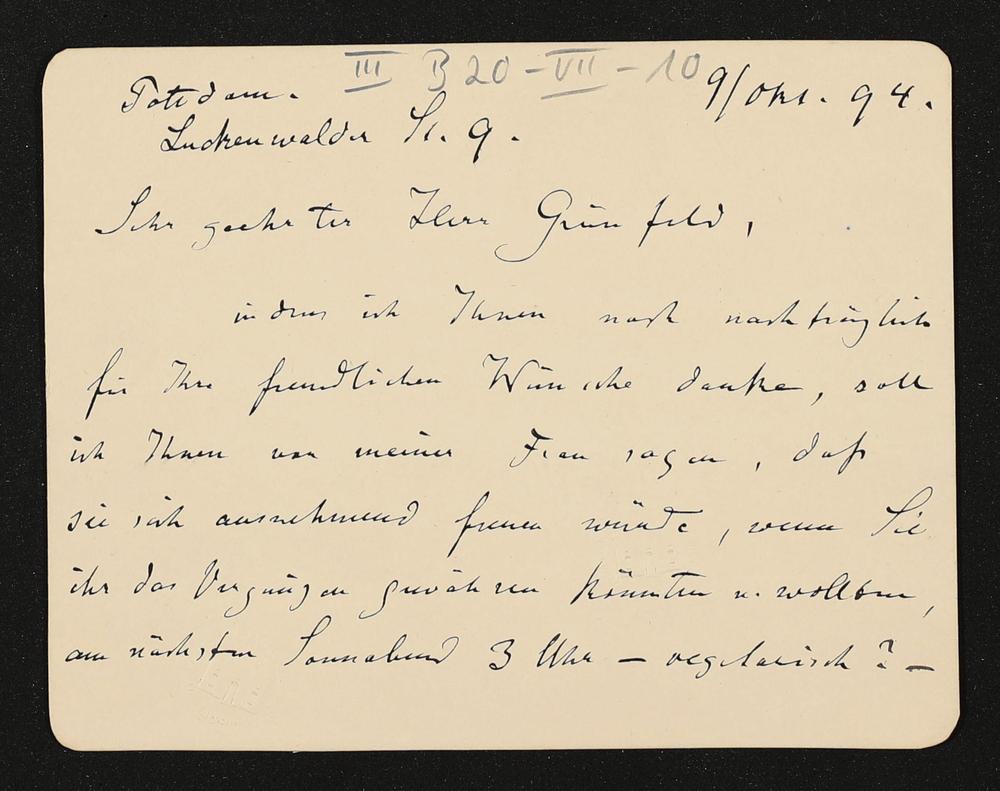 III B 20-VII-10
Potsdam. 9/Okt. 94.
Luckenwalder St. 9.
Sehr geehrter Herr Grünfeld,
indem ich Ihnen noch nachträglich
für Ihre freundlichen Wünsche danke, soll
ich Ihnen von meiner Frau sagen, daß
sie sich ausnehmend freuen würde, wenn Sie
ihr das Vergnügen gewähren könnten u. wollten,
am nächsten Sonnabend 3 Uhr – vegetarisch? –